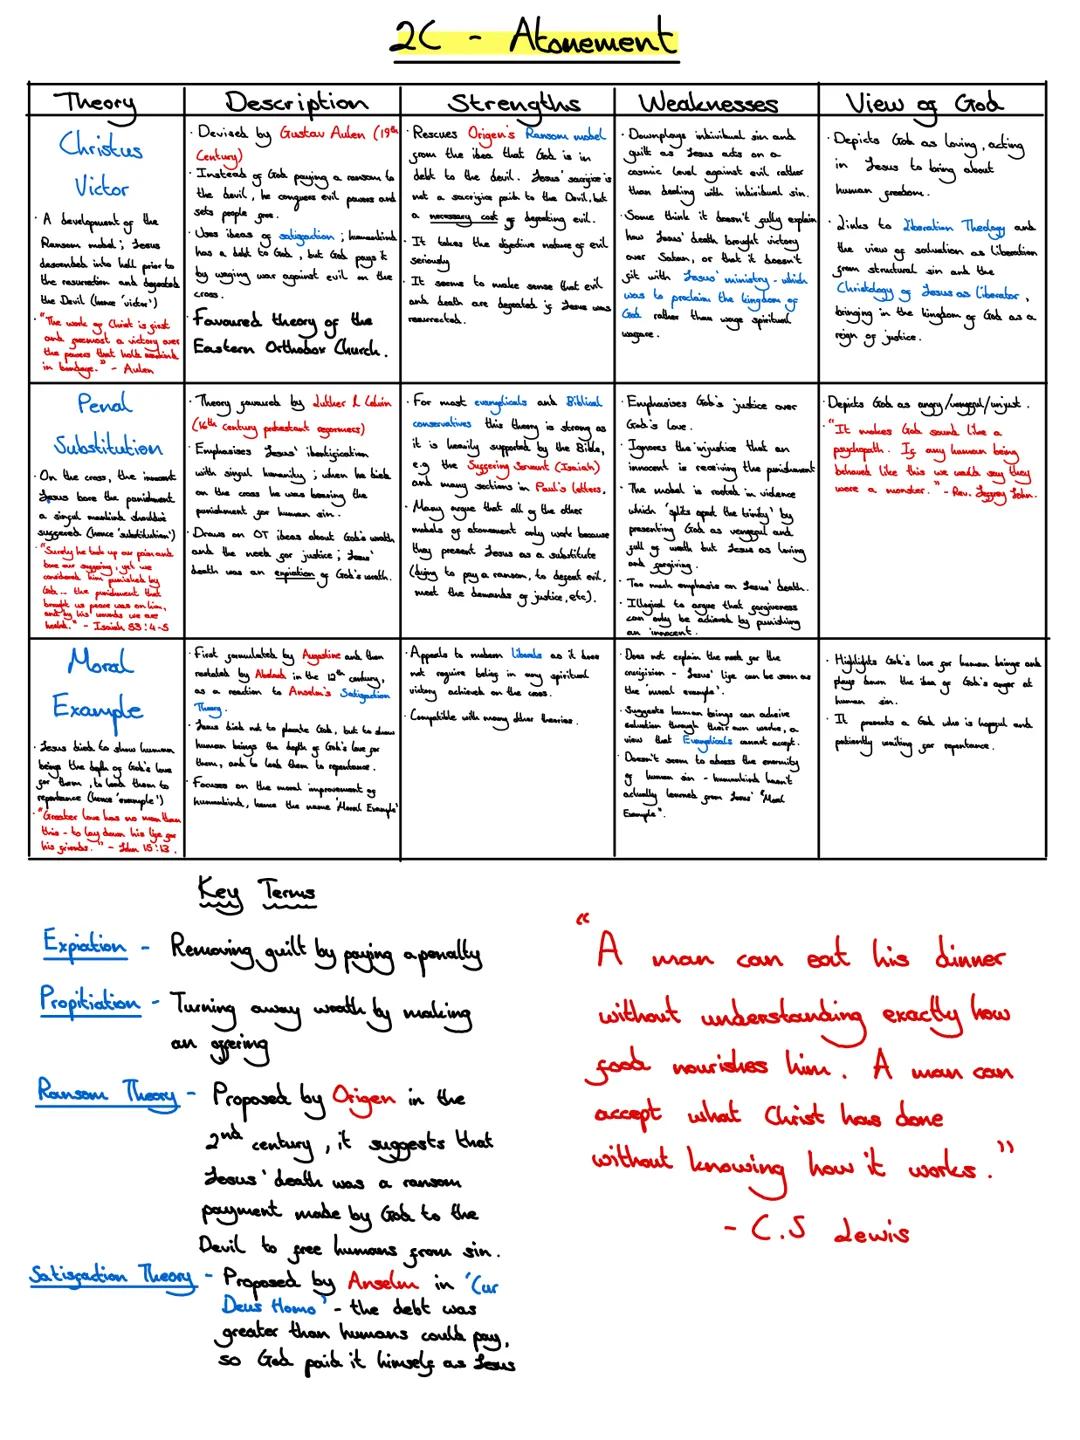 2C - Atonement
Theory
Description
Strengths
Weaknesses
View of God
Christus
Victor
· A development of the
Ransom model; Jesus
descended into hell prior to
the resurrection and defeated
the Devil (hence 'victor')
· "The work of Christ is first
and foremost a victory over
the powers that hold mankind
in bondage." - Aulen
· Devised by Gustav Aulen (19th
Century)
· Instead of God paying a ransom to
the devil, he conquers evil powers and
sets people free.
· Uses ideas of satisfaction; humankind
has a debt to God, but God pays it
by waging war against evil on the
cross.
· Favoured theory of the
Eastern Orthodox Church.
· Rescues Origen's Ransom model
from the idea that God is in
debt to the devil. Jesus' sacrifice is
not a sacrifice paid to the Devil, but
a necessary cost of defeating evil.
· It takes the objective nature of evil
seriously
· It seems to make sense that evil
and death are defeated if Jesus was
resurrected.
· Downplays individual sin and
guilt as Jesus acts on a
cosmic level against evil rather
than dealing with individual sin.
· Some think it doesn't fully explain
how Jesus' death brought victory
over Satan, or that it doesn't
fit with Jesus' ministry - which
was to proclaim the kingdom of
God rather than wage spiritual
warfare.
· Depicts God as loving, acting
in Jesus to bring about
human freedom.
· Links to Liberation Theology and
the view of salvation as liberation
from structural sin and the
Christology of Jesus as liberator,
bringing in the kingdom of God as a
reign of justice.
Penal
Substitution
· On the cross, the innocent
Jesus bore the punishment
a sinful mankind should've
suffered (hence 'substitution')
· "Surely he took up our pain and
bore our suffering, yet we
considered him punished by
God... the punishment that
brought us peace was on him,
and by his wounds we are
healed." - Isaiah 53:4-5
· Theory favoured by Luther & Calvin
(16th century protestant reformers)
· Emphasises Jesus' identification
with sinful humanity; when he died
on the cross he was bearing the
punishment for human sin.
· Draws on OT ideas about God's wrath
and the need for justice; Jesus'
death was an expiation of God's wrath.
· For most evangelicals and Biblical
conservatives this theory is strong as
it is heavily supported by the Bible,
e.g the Suffering Servant (Isaiah)
and many sections in Paul's letters.
· Many argue that all of the other
models of atonement only work because
they present Jesus as a substitute
(dying to pay a ransom, to defeat evil,
meet the demands of justice, etc).
· Emphasises God's justice over
God's love.
· Ignores the injustice that an
innocent is receiving the punishment
· The model is rooted in violence
which 'splits apart the trinity' by
presenting God as vengeful and
full of wrath but Jesus as loving
and forgiving.
· Too much emphasis on Jesus' death.
· Illogical to argue that forgiveness
can only be achieved by punishing
an innocent.
· Depicts God as angry/vengeful/unjust.
· "It makes God sound like a
psychopath. If any human being
behaved like this we would say they
were a monster." - Rev. Jeffrey John.
Moral
Example
· Jesus died to show human
beings the depth of God's love
for them, to lead them to
repentance (hence 'example')
· "Greater love has no man than
this - to lay down his life for
his friends." - John 15:13.
· First formulated by Augustine and then
restated by Abelard in the 12th century,
as a reaction to Anselm's Satisfaction
Theory.
· Jesus died not to placate God, but to show
human beings the depth of God's love for
them, and to lead them to repentance.
· Focuses on the moral improvement of
humankind, hence the name 'Moral Example'
· Appeals to modern liberals as it does
not require belief in any spiritual
victory achieved on the cross.
· Compatible with many other theories.
· Does not explain the need for the
crucifixion - Jesus' life can be seen as
the 'moral example'.
· Suggests human beings can achieve
salvation through their own works, a
view that Evangelicals cannot accept.
· Doesn't seem to adress the enormity
of human sin - humankind hasn't
actually learned from Jesus' "Moral
Example".
· Highlights God's love for human beings and
plays down the idea of God's anger at
human sin.
· It presents a God who is hopeful and
patiently waiting for repentance.
Key Terms
Expiation - Removing guilt by paying a penalty
Propitiation - Turning away wrath by making
an offering
Ransom Theory - Proposed by Origen in the
2nd century, it suggests that
Jesus' death was a ransom
payment made by God to the
Devil to free humans from sin.
Satisfaction Theory - Proposed by Anselm in 'Cur
Deus Homo' - the debt was
greater than humans could pay,
so God paid it himself as Jesus
"A man can eat his dinner
without understanding exactly how
food nourishes him. A man can
accept what Christ has done
without knowing how it works."
- C.S Lewis